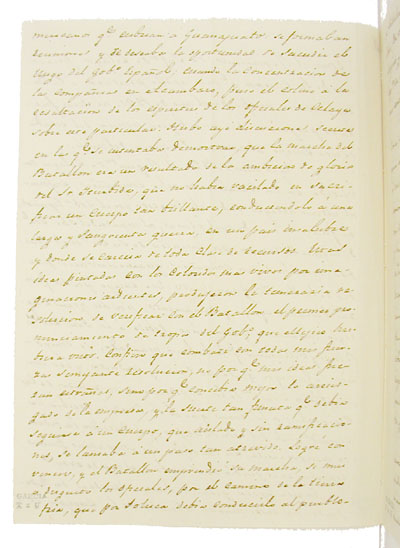 mexicano qe. cubrian a Guanajuato se formaban
reuniones y deseaba la oportunidad de sacudir el
yugo del Gobo. Español, cuando la concentracion de
las compañias en el cumbaro, puso el colmo á la
exaltacion de los espiritus de los oficiales de Celaya
sobre ese particular. Hubo aya discusiones secretas
en las qe. se intentaba demostrar, que la marcha del
Batallon era un resultado de la ambicion de gloria
del Sr. Yturbide, que no habia vacilado en sacri-
ficar un cuerpo tan brillante, conduciendolo á una
larga y sangrienta guerra, en un pais insalubre
y donde se carecia de toda clase de recursos. Unas
ideas pintadas con los coloridos mas vivos por ima-
ginaciones ardientes, produjeron la temeraria re-
solucion de verificar con el Batallon, el primer pro-
nunciamiento de tropa del Gobo. que alli se hu-
biera visto. Confieso que combatí con todas mis fuer-
zas semejante resolucion, no porqe. mis ideas fue-
ran estrañas, sino porqe. conocia mejor lo arries-
gado de la empresa, y la suerte tan qe. debia
seguirse á un cuerpo, que aislado y sin ramificacio-
nes, se lanzaba á un paso tan atrevido. Logré con-
vencer, y el Batallon emprendio su marcha, se mi-
 los oficiales, por el camino de la tierra
fria, que por Toluca debia conducirlo al pueblo